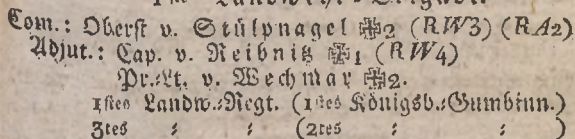 Com.: Oberst v. Stülpnagel ✠2 (RW3) (RA2)
Adjut.: Cap. v. Reibnitz ✠1 (RW4)
Pr.-Lt. v. Wechmar ✠2.
1stes Landw.-Regt. (1stes Königsb.-Gumbinn.)
3tes : : (2tes : : )